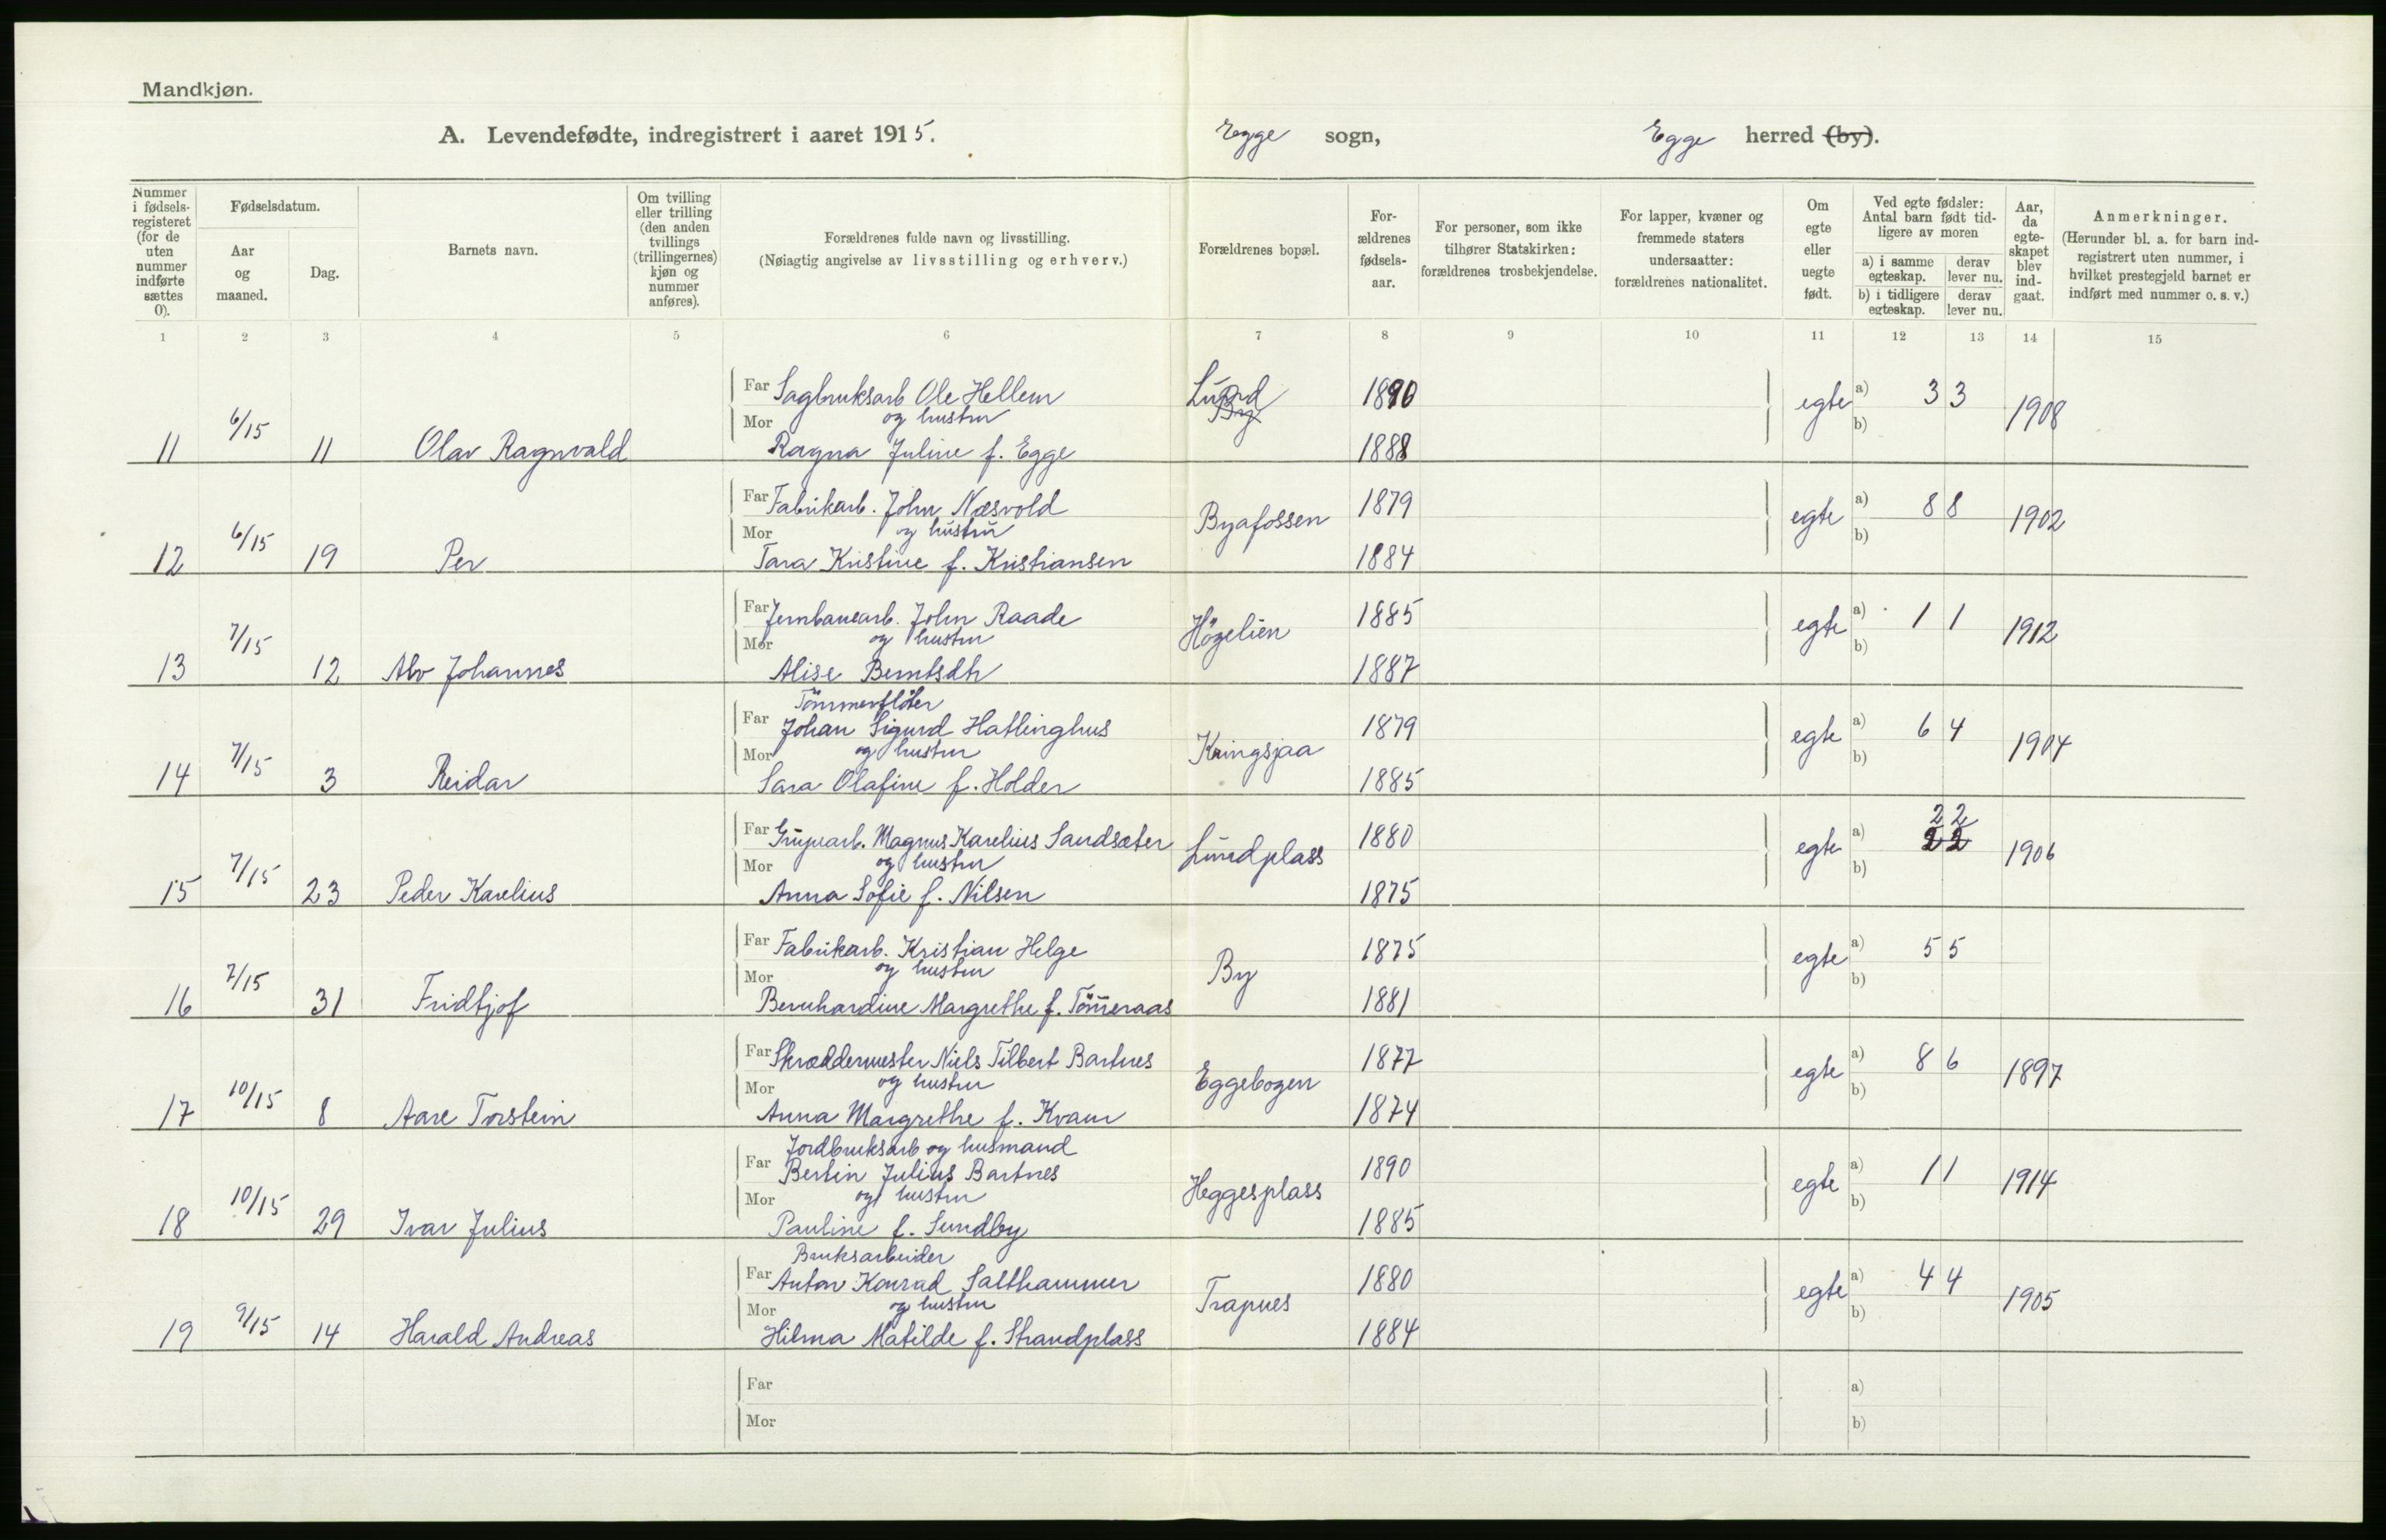 Mandkjøn.
A. Levendefødte, indregistrert i aaret 1915. Egge sogn, Egge herred (by).
Nummer i fødselsregisteret (for de uten nummer indførte sættes 0).
Fødselsdatum.
Aar og maaned.
Dag.
Barnets navn.
Om tvilling eller trilling (den anden tvillings (trillingernes) kjøn og nummer anføres).
Forældrenes fulde navn og livsstilling.
(Nøiagtig angivelse av livsstilling og erhverv.)
Forældrenes bopæl.
Forældrenes fødselsaar.
For personer, som ikke tilhører Statskirken: forældrenes trosbekjendelse.
For lapper, kvæner og fremmede staters undersaatter: forældrenes nationalitet.
Om egte eller uegte født.
Ved egte fødsler: Antal barn født tidligere av moren
a) i samme egteskap. derav lever nu.
b) i tidligere egteskap. derav lever nu.
Aar, da egteskapet blev indgaat.
Anmerkninger.
(Herunder bl. a. for barn indregistrert uten nummer, i hvilket prestegjeld barnet er indført med nummer o. s. v.)
1 2 3 4 5 6 7 8 9 10 11 12 13 14 15
Far Sagbruksarb Ole Hellem Lund 1890 egte a) 3 3 1908
Mor og hustru By b)
11 6/15 11 Olav Ragnvald Ragna Juline f. Egge 1888
Far Fabrikarb. John Næsvold Byafossen 1879 egte a) 8 8 1902
Mor og hustru b)
12 6/15 19 Per Tara Kristine f. Kristiansen 1884
Far Jernbanearb. John Raade Högelien 1885 egte a) 1 1 1912
Mor og hustru b)
13 7/15 12 Alv Johannes Alise Berntsdtr 1887
Tömmerflöter
Far Johan Sigurd Hatlinghus Kringsjaa 1879 egte a) 6 4 1904
Mor og hustru b)
14 7/15 3 Reidar Sara Olafine f. Holder 1885
2 2
Far Grupearb. Magnus Karelius Sandsæter Lundplass 1880 egte a) 2 2 1906
Mor og hustru b)
15 7/15 23 Peder Karelius Anna Sofie f. Nilsen 1875
Far Fabrikarb. Kristian Helge By 1875 egte a) 5 5
Mor og hustru b)
16 7/15 31 Fridtjof Bernhardine Margrethe f. Tömeraas 1881
Far Skræddermester Niels Tilbert Bartnes Eggebogen 1877 egte a) 8 6 1897
Mor og hustru b)
17 10/15 8 Aare Torstein Anna Margrethe f. Kvam 1874
Jordbruksarb og husmand
Far Bertin Julius Bartnes Heggesplass 1890 egte a) 1 1 1914
Mor og hustru b)
18 10/15 29 Ivar Julius Pauline f. Sundby 1885
Bruksarbeider
Far Anton Konrad Salthammer Trapnes 1880 egte a) 4 4 1905
Mor og hustru b)
19 9/15 14 Harald Andreas Hilma Matilde f. Strandplass 1884
Far a)
Mor b)